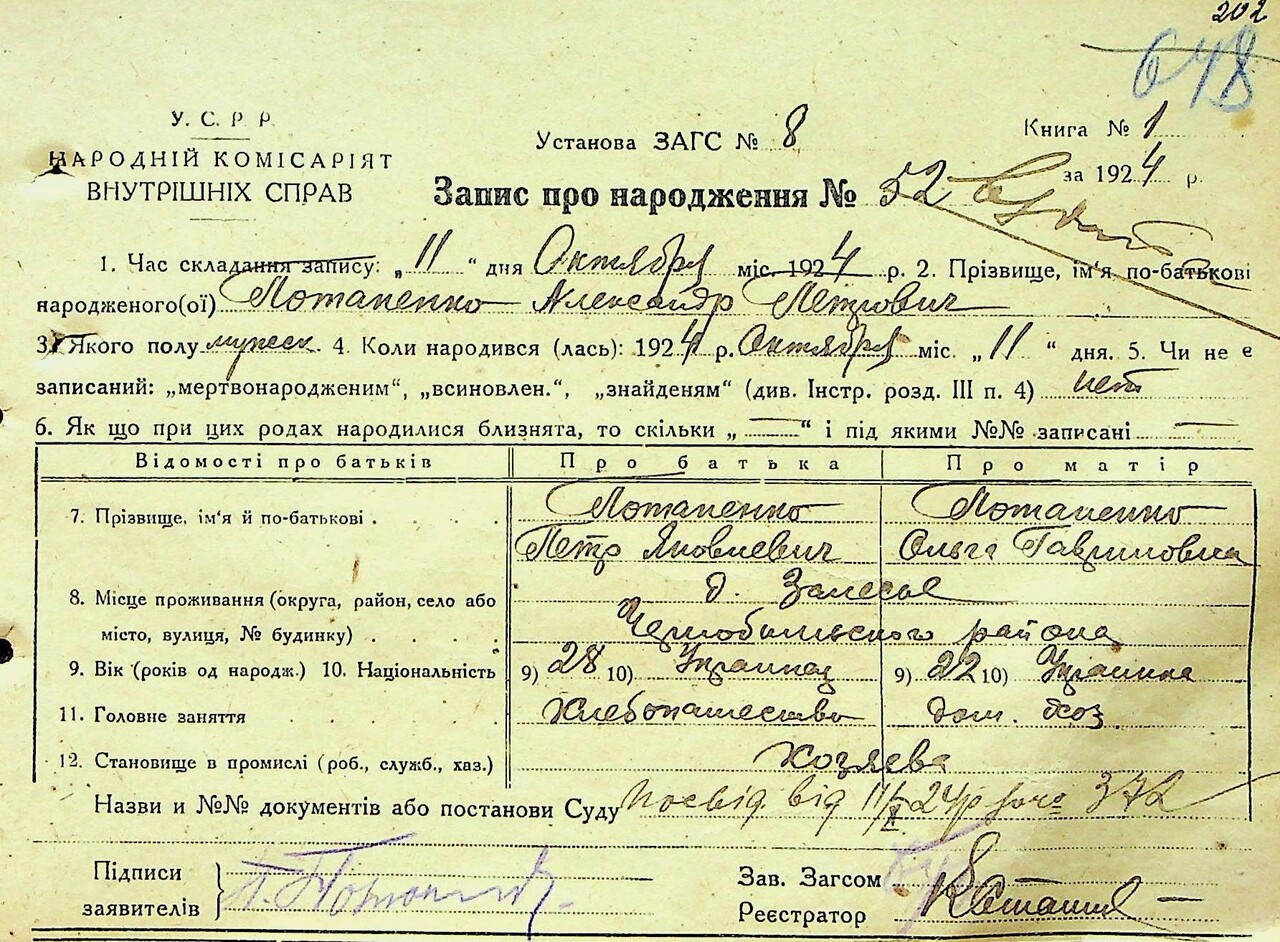 202
648
У. С. Р. Р.
НАРОДНІЙ КОМІСАРІЯТ
ВНУТРІШНІХ СПРАВ
Установа ЗАГС № 8
Книга № 1
за 1924 р.
Запис про народження № 52
1. Час складання запису: „11“ дня Октября міс. 1924 р. 2. Прізвище, ім'я по-батькові
народженого(ої) Потапенко Александр Петрович
3. Якого полу мужеск. 4. Коли народився (лась): 1924 р. Октября міс. „11“ дня. 5. Чи не є
записаний: „мертвонародженим“, „всиновлен.“, „знайденям“ (див. Інстр. розд. III п. 4) нет
6. Як що при цих родах народилися близнята, то скільки „—“ і під якими №№ записані —
Відомості про батьків Про батька Про матір
7. Прізвище, ім'я й по-батькові . . . . Потапенко Потапенко
Петр Яковлевич Ольга Гавриловна
8. Місце проживання (округа, район, село або д. Залесье
місто, вулиця, № будинку) . . . . Чернобыльского района
9. Вік (років од народж.) 10. Національність 9) 28 10) Украинец 9) 22 10) Украинка
11. Головне заняття . . . . Хлебопашество дом. хоз
12. Становище в промислі (роб., служб., хаз.) Хозяева
Назви и №№ документів або постанови Суду Посвід. від 11/X 24р 372
Підписи
заявителів П.
Зав. Загсом
Реєстратор